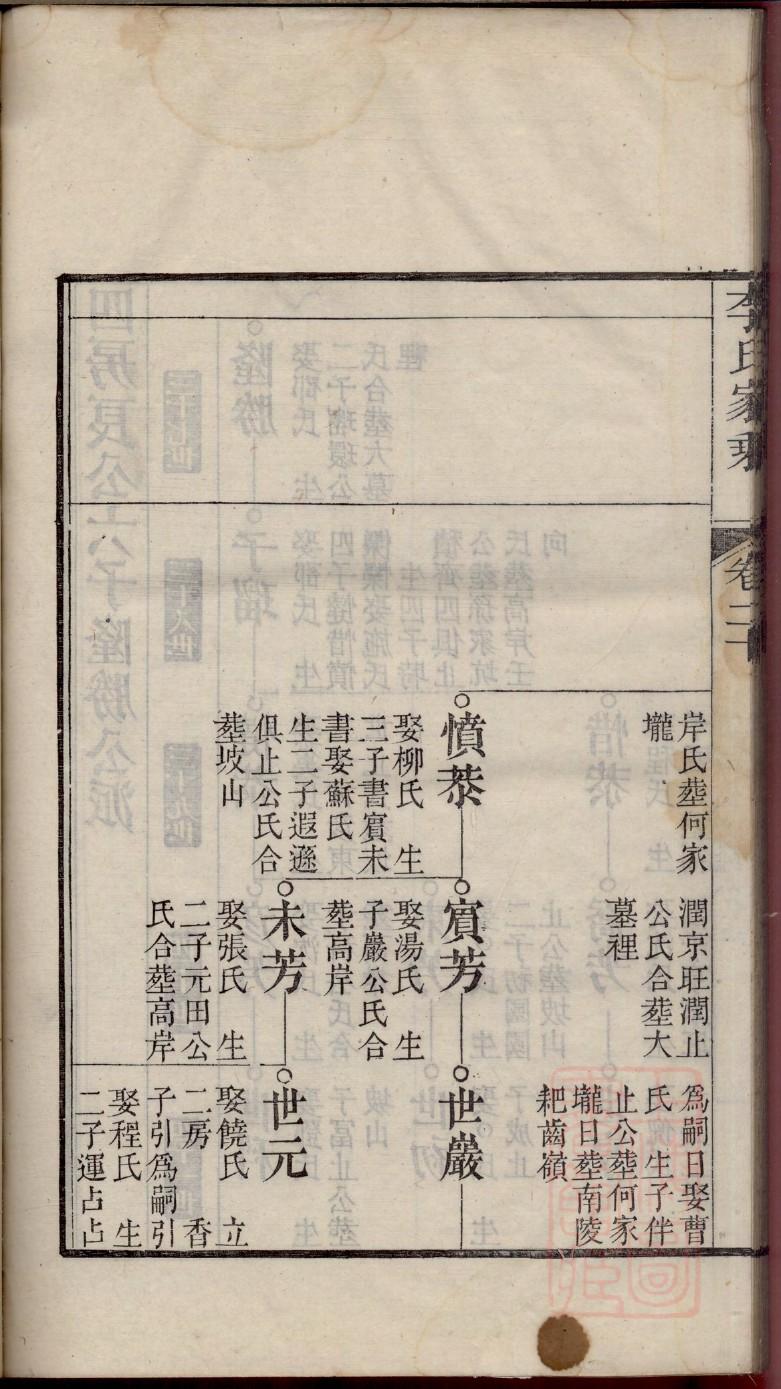 李氏家乘
卷二十
岸氏塟何家
壠
憤恭
娶柳氏　生
三子書賔未
書娶蘇氏
生二子遐遜
俱止公氏合
塟坡山
潤京旺潤止
公氏合塟大
墓裡
賔芳
娶湯氏　生
子嚴公氏合
塟高岸
未芳
娶張氏　生
二子元田公
氏合塟高岸
爲嗣日娶曹
氏　生子伴
止公塟何家
壠日塟南陵
耙齒嶺
世嚴
世元
娶饒氏　立
二房　香
子引爲嗣引
娶程氏　生
二子運占占